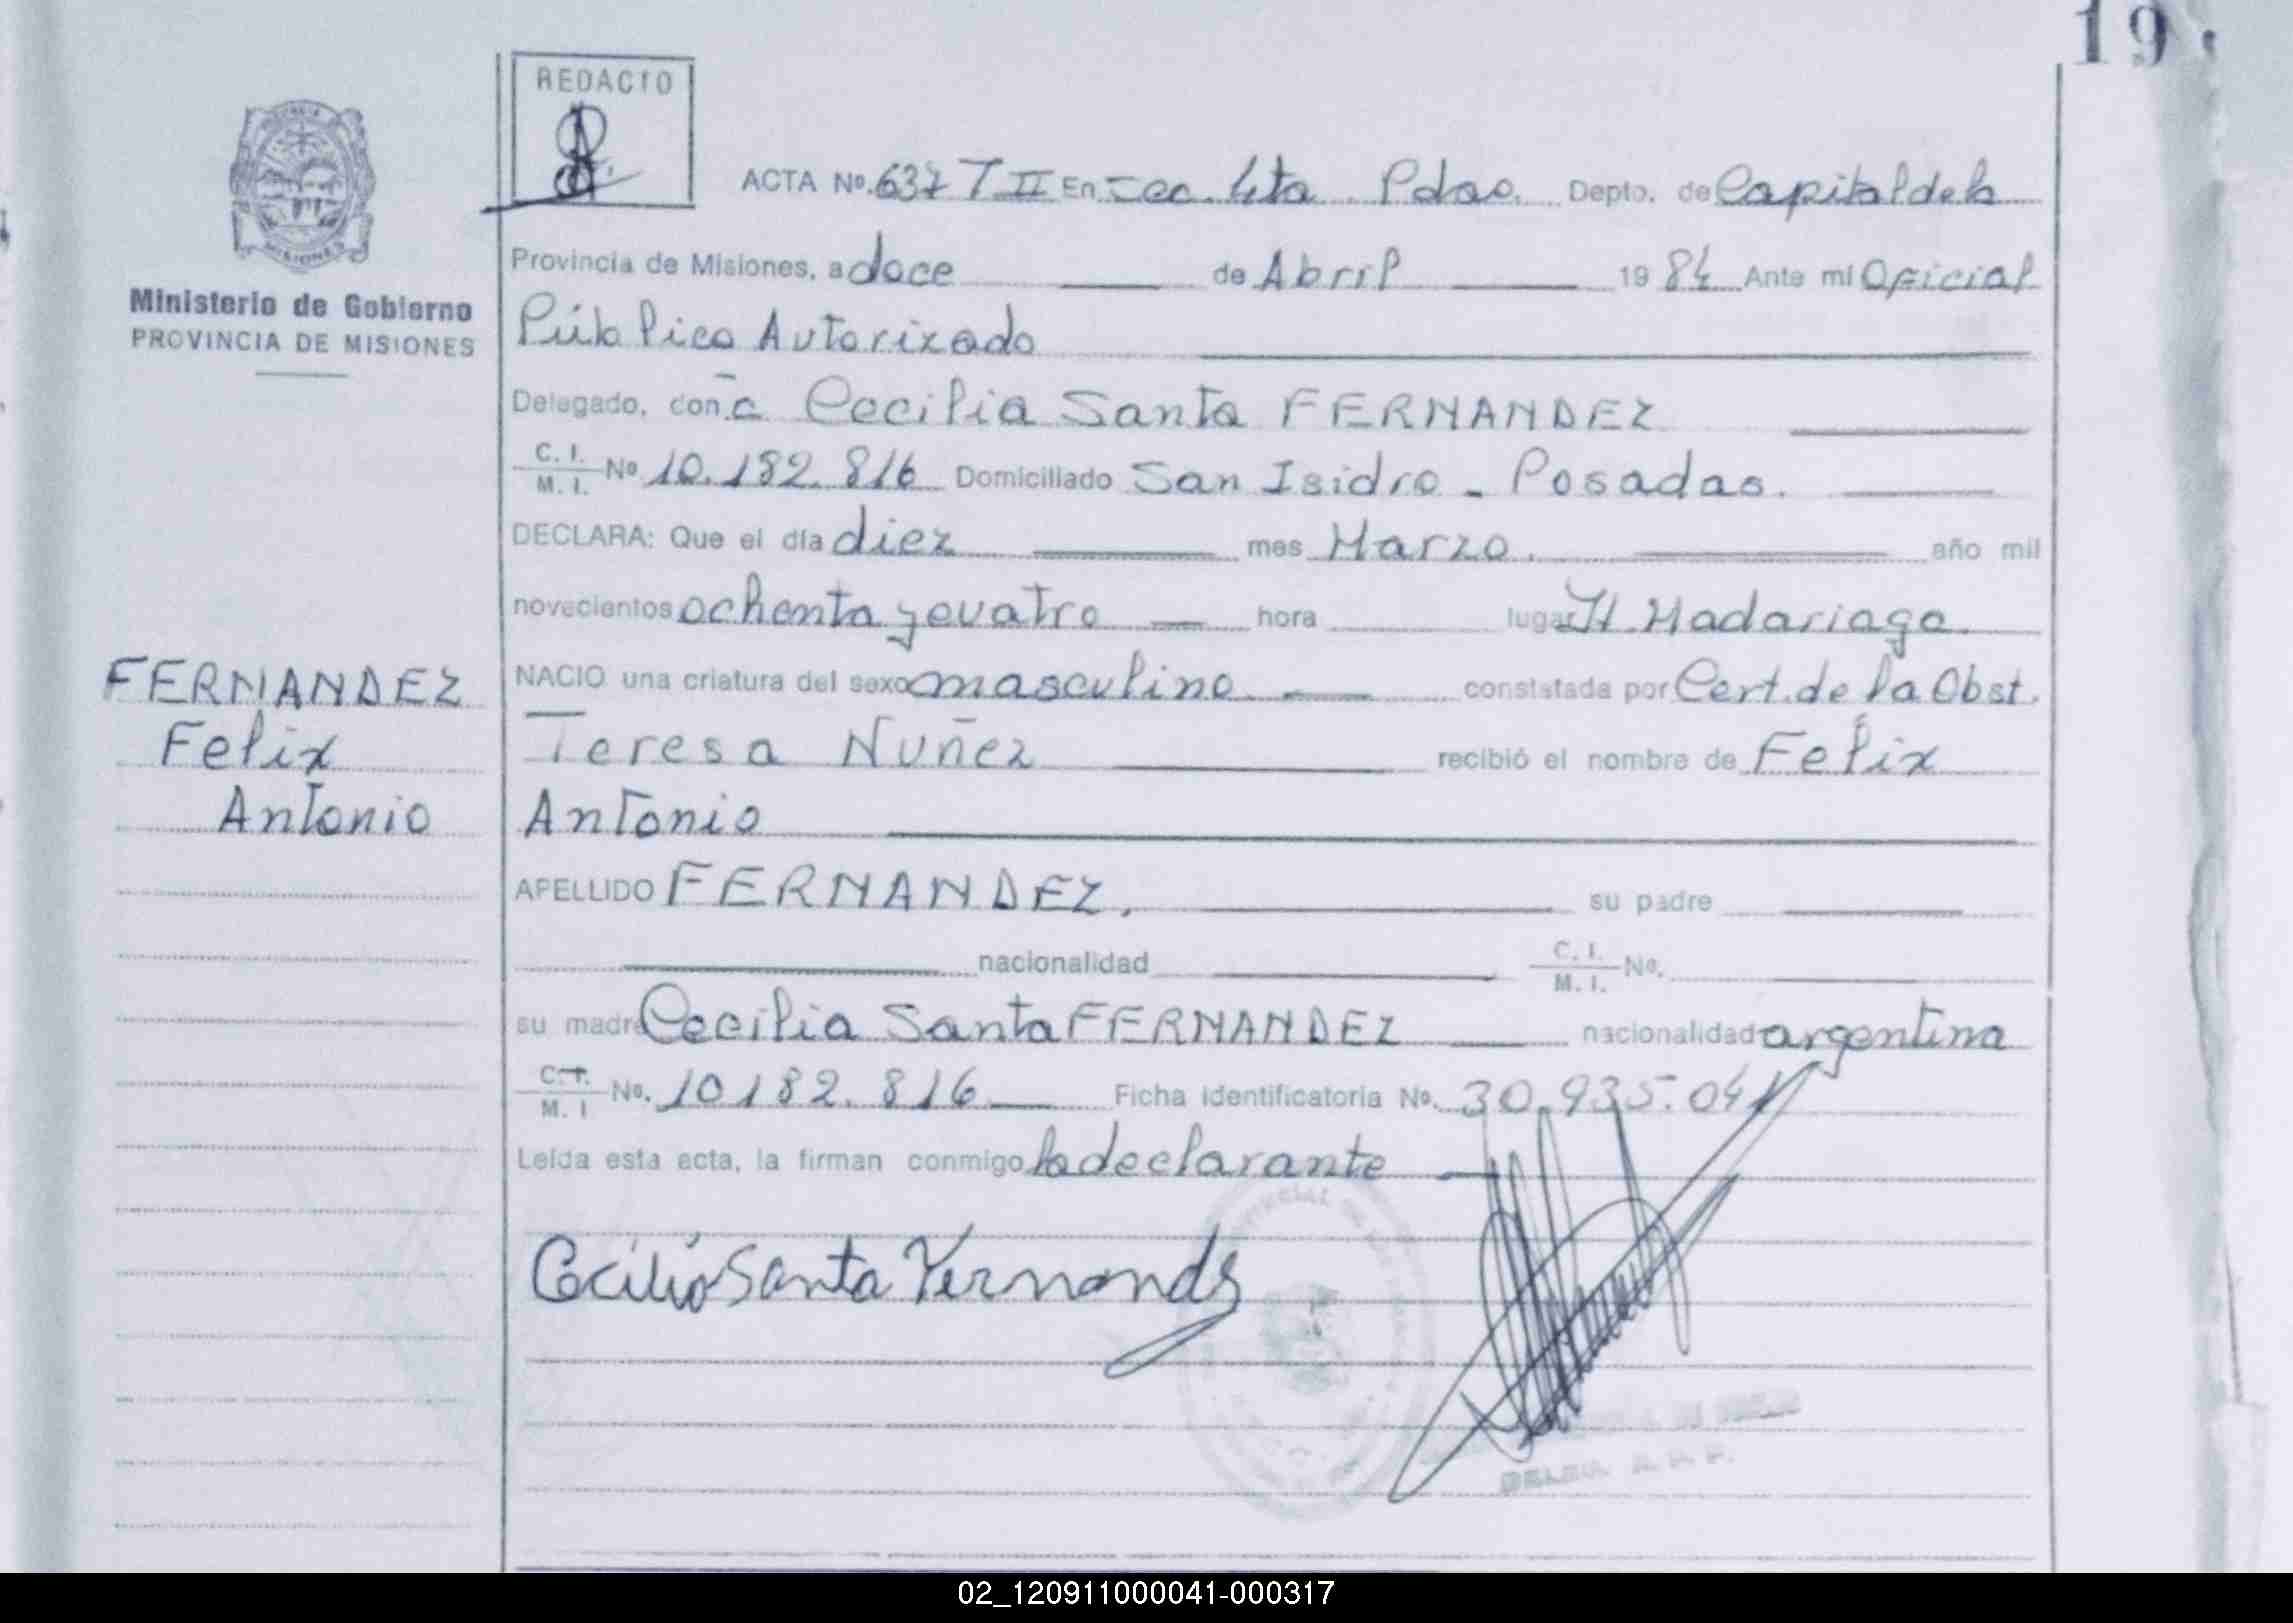 19
REDACTO
ACTA Nº. 637 T II En Sec. 4ta Pdas. Depto. de Capital de la
Ministerio de Gobierno
PROVINCIA DE MISIONES
Provincia de Misiones, a doce de Abril 19 84 Ante mi Oficial
Público Autorizado
Delegado, doña Cecilia Santa FERNANDEZ
C. I. / M. I. Nº 10.182.816 Domiciliado San Isidro - Posadas.
DECLARA: Que el día diez mes Marzo. año mil
novecientos ochenta y cuatro hora lugar H. Madariaga.
NACIO una criatura del sexo masculino constatada por Cert. de la Obst.
Teresa Nuñez recibió el nombre de Félix
Antonio
FERNANDEZ
Felix
Antonio
APELLIDO FERNANDEZ. su padre
nacionalidad C. I. / M. I. Nº.
su madre Cecilia Santa FERNANDEZ nacionalidad argentina
C. I. / M. I Nº. 10182.816 Ficha Identificatoria Nº. 30.935.041
Leída esta acta, la firman conmigo la declarante
Cecilia Santa Fernandez
02_120911000041-000317